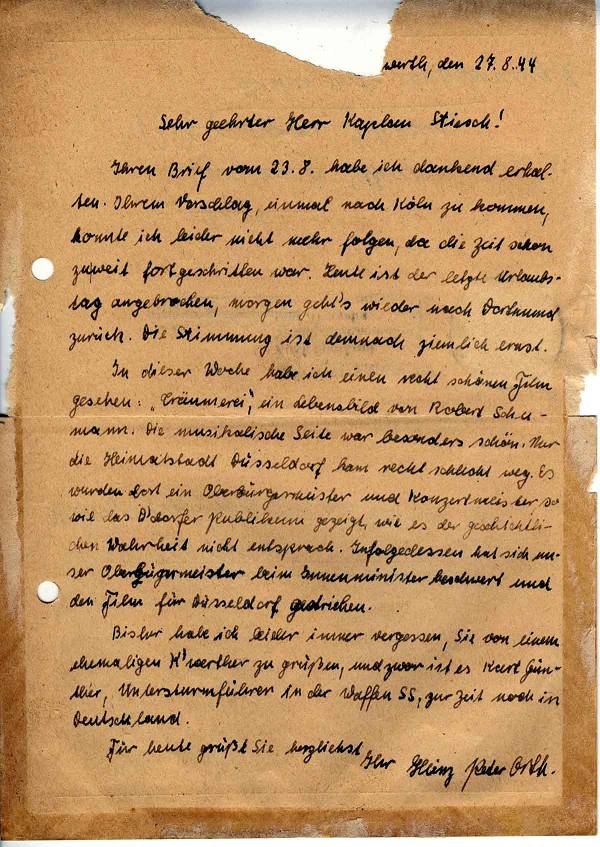 werth, den 27.8.44
Sehr geehrter Herr Kaplan Stiesch!
Ihren Brief vom 23.8. habe ich dankend erhal-
ten. Ihrem Vorschlag, einmal nach Köln zu kommen,
konnte ich leider nicht mehr folgen, da die Zeit schon
zu weit fortgeschritten war. Heute ist der letzte Urlaubs-
tag angebrochen, morgen geht's wieder nach Dortmund
zurück. Die Stimmung ist demnach ziemlich ernst.
In dieser Woche habe ich einen recht schönen Film
gesehen: „Träumerei", ein Lebensbild von Robert Schu-
mann. Die musikalische Seite war besonders schön. Nur
die Heimatstadt Düsseldorf kam recht schlecht weg. Es
wurden dort ein Oberbürgermeister und Konzertmeister so
wie das D'dorfer Publikum gezeigt, wie es der geschichtli-
chen Wahrheit nicht entsprach. Infolgedessen hat sich un-
ser Oberbürgermeister beim Innenminister beschwert und
den Film für Düsseldorf gestrichen.
Bisher habe ich leider immer vergessen, Sie von einem
ehemaligen K'werther zu grüßen, und zwar ist es Karl Gün-
ther, Untersturmführer in der Waffen SS, zur Zeit noch in
Deutschland.
Für heute grüßt Sie herzlichst
Ihr Heinz Peter Orth.